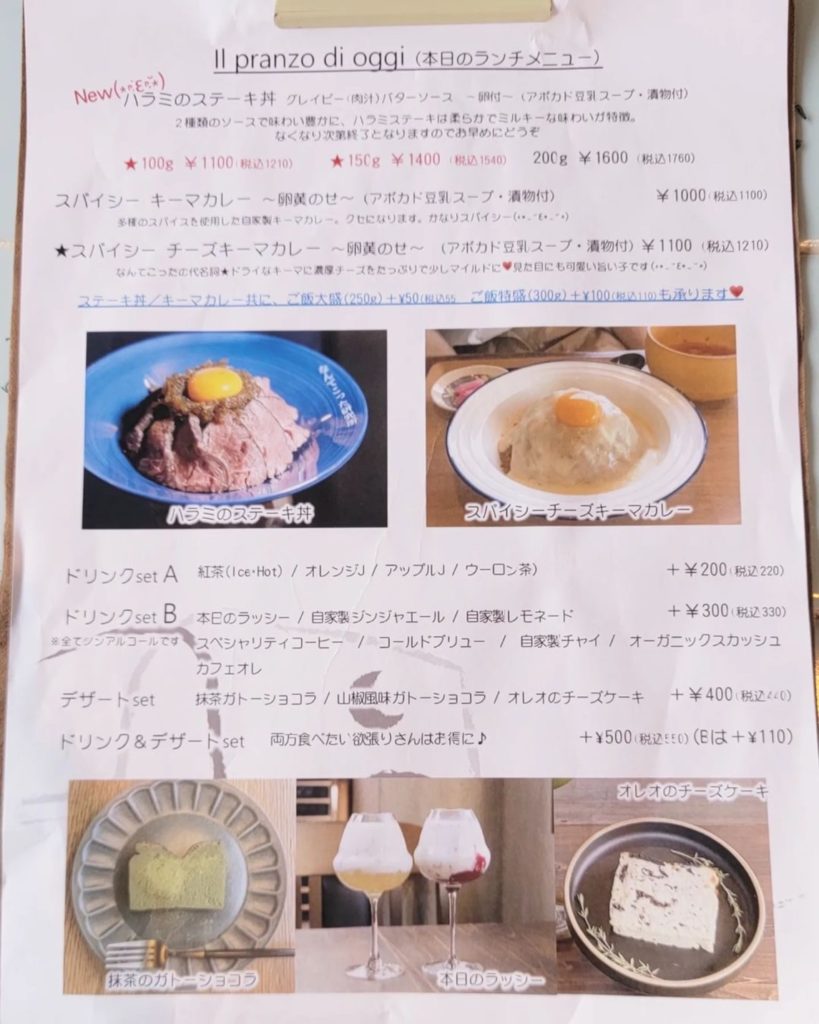 Il pranzo di oggi (本日のランチメニュー)
New ハラミのステーキ丼 グレイビー(肉汁)バターソース ～卵付～ (アボカド豆乳スープ・漬物付)
2種類のソースで味わい豊かに、ハラミステーキは柔らかでミルキーな味わいが特徴。
なくなり次第終了となりますのでお早めにどうぞ
★100g ￥1100(税込1210) ★150g ￥1400 (税込1540) 200g ￥1600 (税込1760)
スパイシー キーマカレー ～卵黄のせ～ (アボカド豆乳スープ・漬物付) ￥1000(税込1100)
多種のスパイスを使用した自家製キーマカレー。クセになります。かなりスパイシー
★スパイシー チーズキーマカレー ～卵黄のせ～ (アボカド豆乳スープ・漬物付) ￥1100 (税込1210)
なんてこったの代名詞★ドライなキーマに濃厚チーズをたっぷりで少しマイルドに♥見た目にも可愛い旨い子です
ステーキ丼／キーマカレー共に、ご飯大盛(250g)＋¥50(税込55 ご飯特盛(300g)＋¥100(税込110)も承ります♥
ハラミのステーキ丼
スパイシーチーズキーマカレー
ドリンクset A 紅茶(Ice・Hot) / オレンジJ / アップルJ / ウーロン茶) ＋￥200(税込220)
ドリンクset B 本日のラッシー / 自家製ジンジャエール / 自家製レモネード ＋￥300(税込330)
※全てノンアルコールです スペシャリティコーヒー / コールドブリュー / 自家製チャイ / オーガニックスカッシュ
カフェオレ
デザートset 抹茶ガトーショコラ / 山椒風味ガトーショコラ / オレオのチーズケーキ ＋￥400(税込440)
ドリンク＆デザートset 両方食べたい欲張りさんはお得に♪ ＋¥500(税込550) (Bは＋¥110)
オレオのチーズケーキ
抹茶のガトーショコラ
本日のラッシー